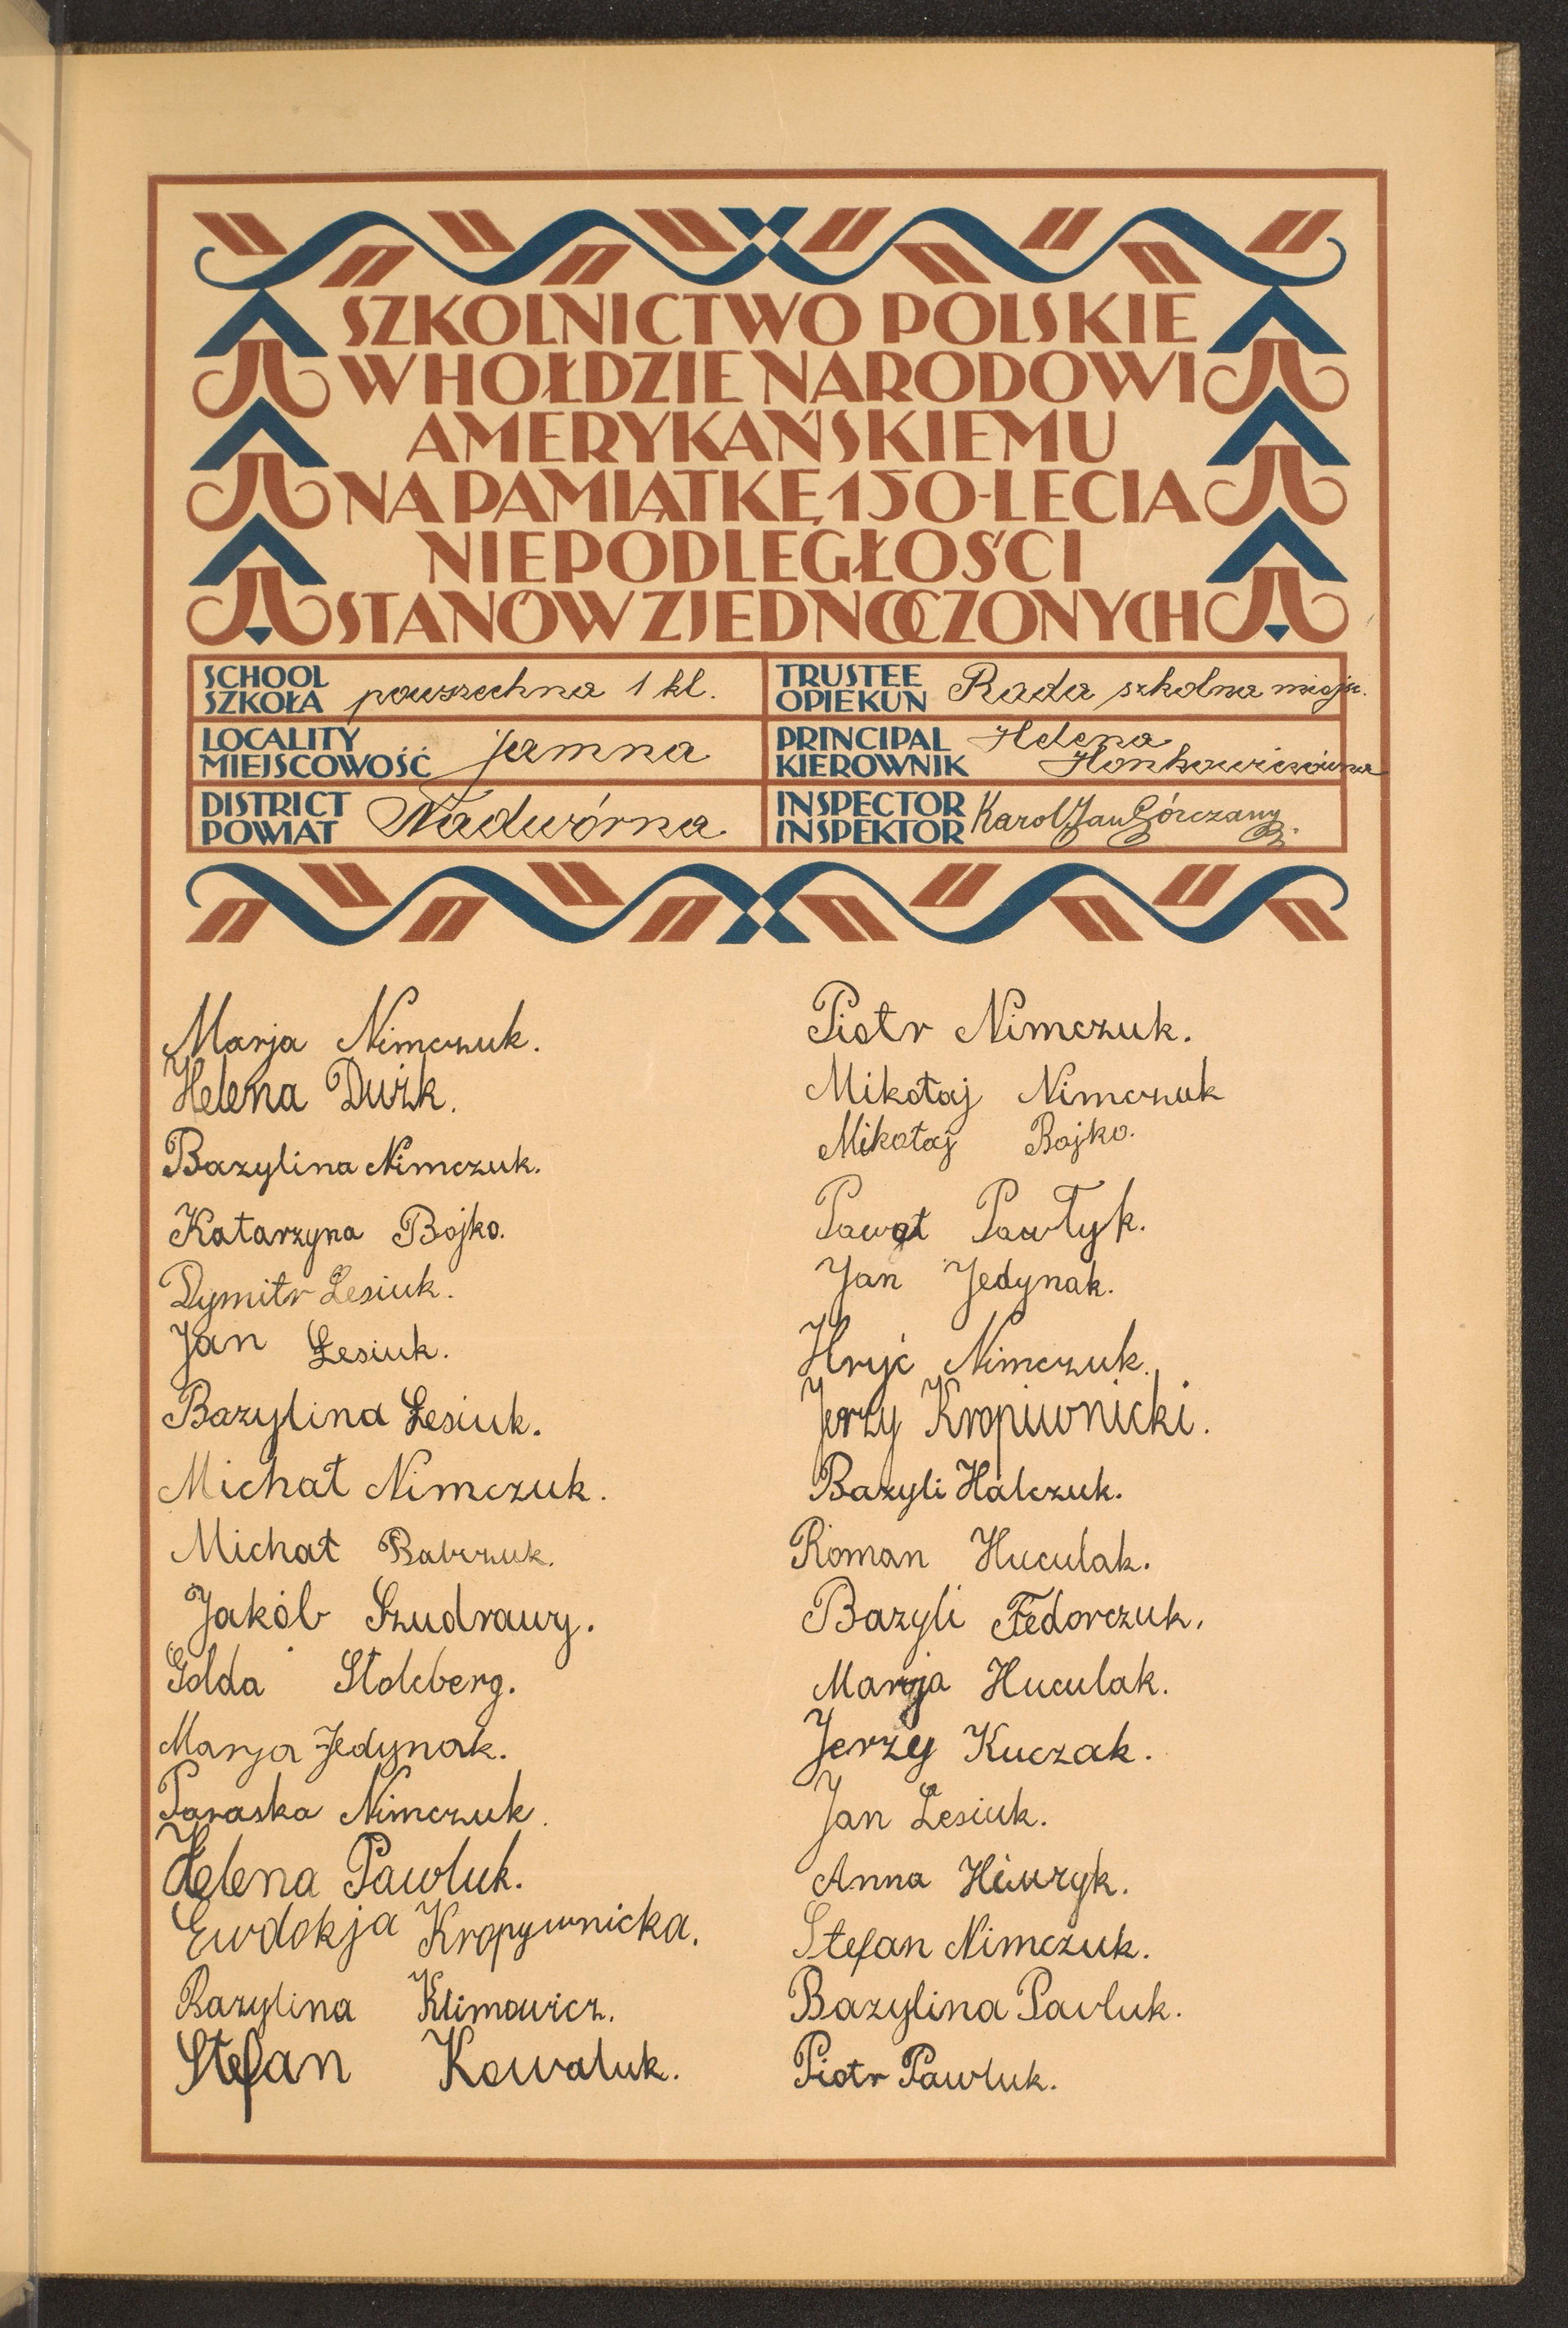 SZKOLNICTWO POLSKIE
W HOŁDZIE NARODOWI
AMERYKAŃSKIEMU
NA PAMIĄTKĘ 150-LECIA
NIEPODLEGŁOŚCI
STANÓW ZJEDNOCZONYCH
SCHOOL
SZKOŁA powszechna 1 kl.
TRUSTEE
OPIEKUN Rada szkolna miejsc.
LOCALITY
MIEJSCOWOŚĆ Jamna
PRINCIPAL Helena
KIEROWNIK Honkowiczówna
DISTRICT
POWIAT Nadwórna
INSPECTOR
INSPEKTOR Karol Jan Górczany
Marja Nimczuk.
Helena Dużk.
Bazylina Nimczuk.
Katarzyna Bojko.
Dymitr Łesiuk.
Jan Łesiuk.
Bazylina Łesiuk.
Michał Nimczuk.
Michał Babczuk.
Jakób Szudrawy.
Golda Stolcberg.
Marja Jedynak.
Paraska Nimczuk.
Helena Pawluk.
Ewdokja Kropywnicka.
Bazylina Klimowicz.
Stefan Kowaluk.
Piotr Nimczuk.
Mikołaj Nimczuk
Mikołaj Bojko.
Paweł Pawłyk.
Jan Jedynak.
Hryć Nimczuk.
Jerzy Kropiwnicki.
Bazyli Halczuk.
Roman Huculak.
Bazyli Fedorczuk.
Marja Huculak.
Jerzy Kuczak.
Jan Łesiuk.
Anna
Stefan Nimczuk.
Bazylina Pavluk.
Piotr Pawluk.